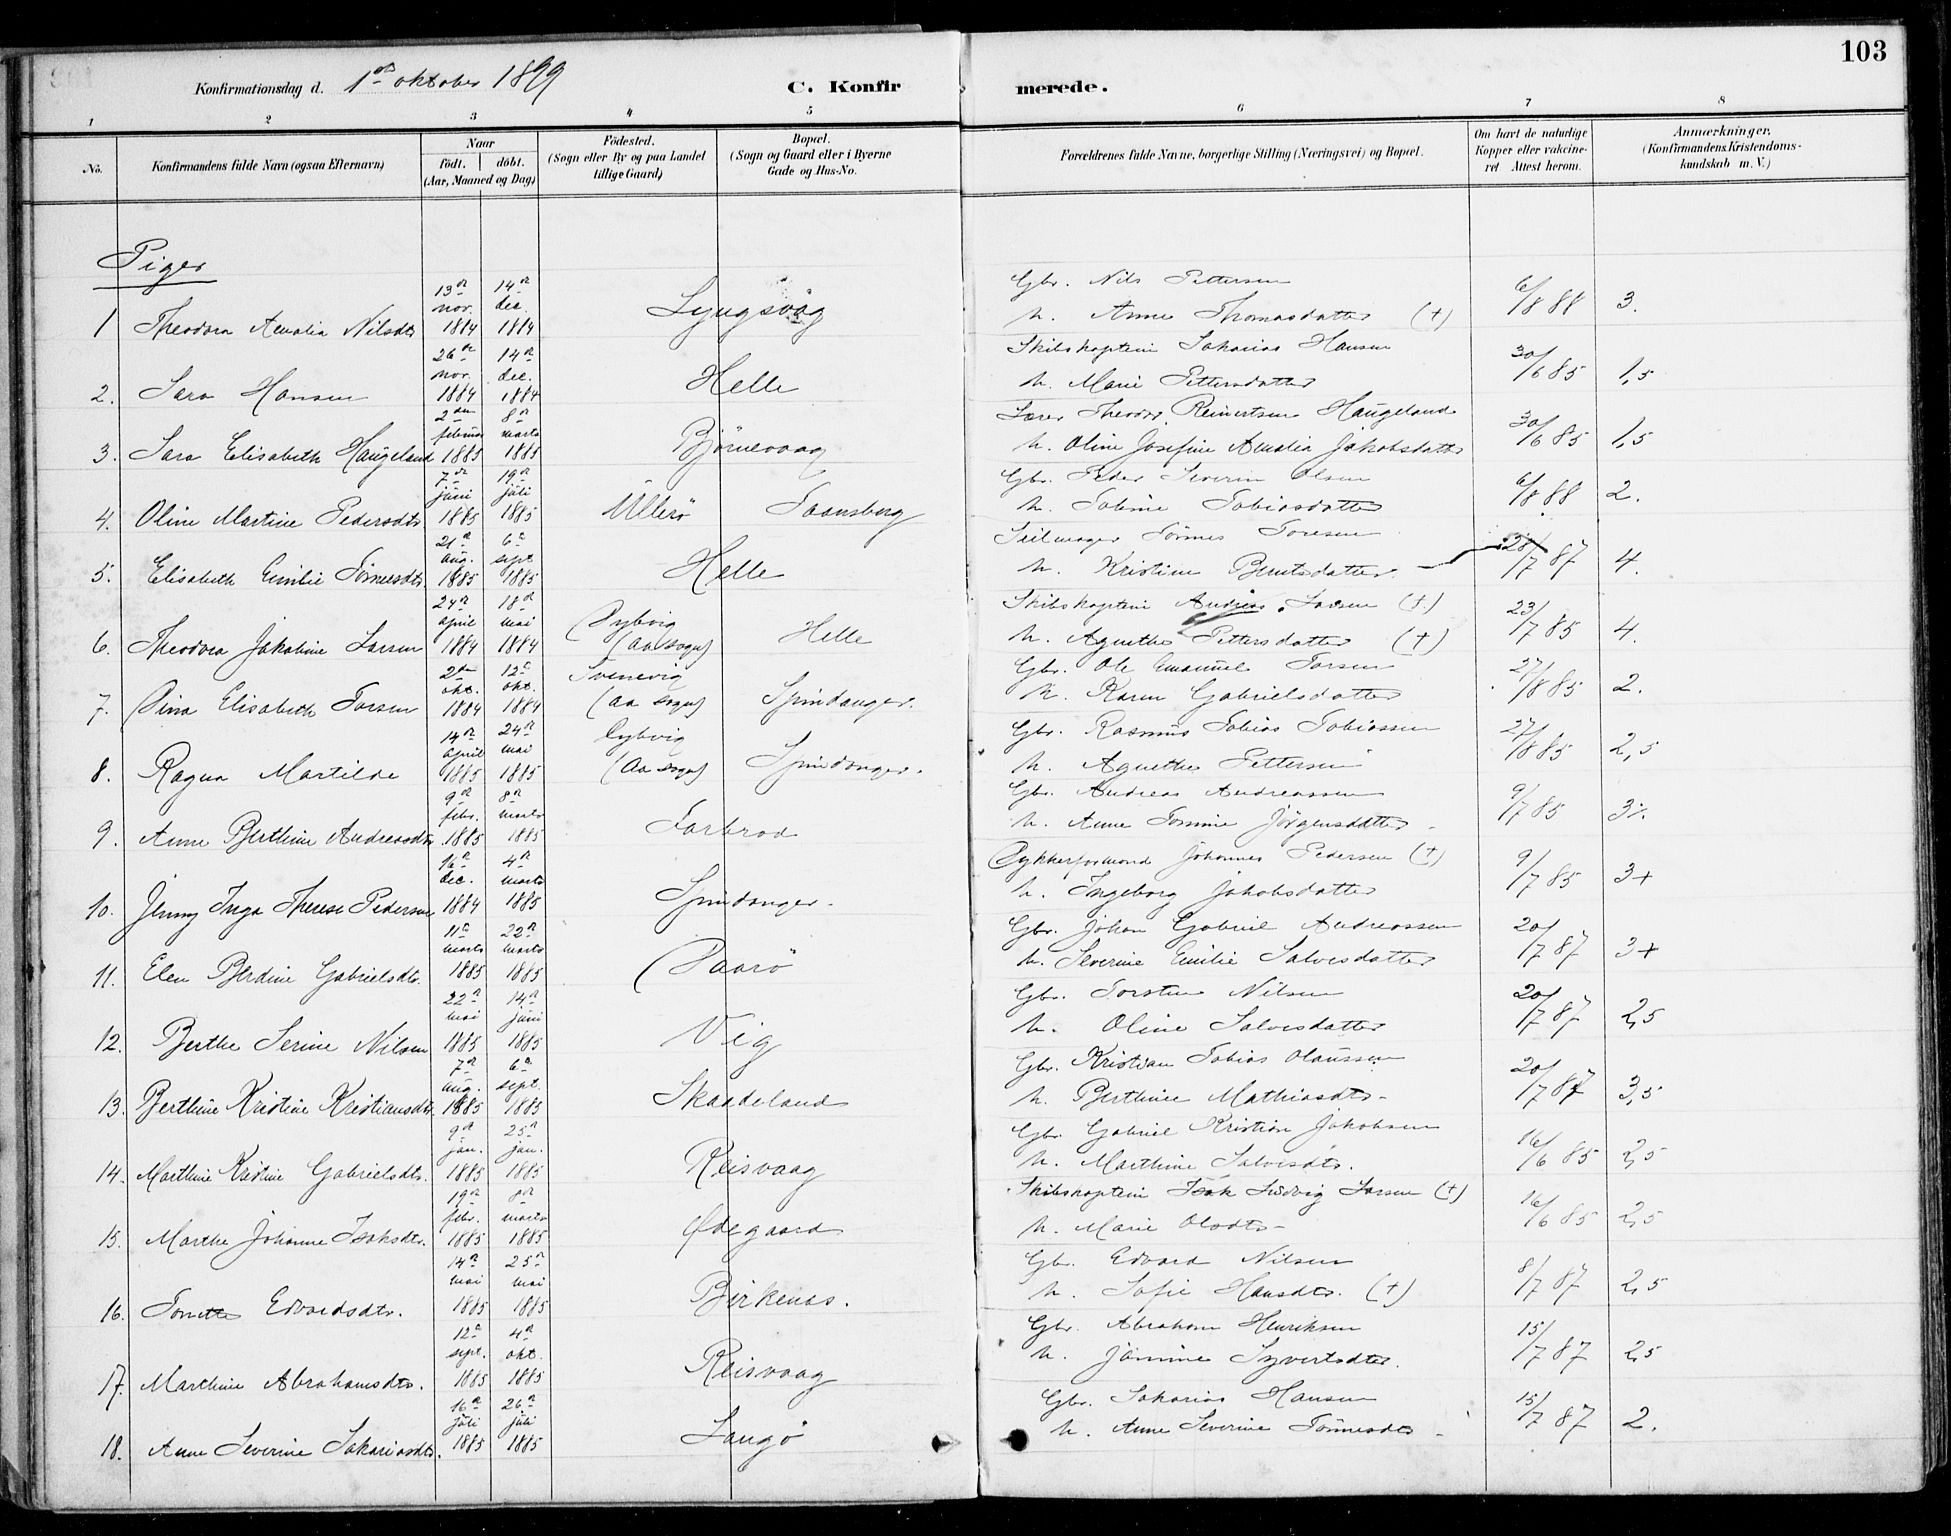 103
Konfirmationsdag d. 1ste oktober 1899
C. Konfirmerede.
1 2 3 4 5 6 7 8
No.
Konfirmandens fulde Navn (ogsaa Efternavn)
Naar
födt. döbt.
(Aar, Maaned og Dag)
Födested.
(Sogn eller By og paa Landet
tillige Gaard)
Bopæl.
(Sogn og Gaard eller i Byerne
Gade og Hus-No.
Forældrenes fulde Navne, borgerlige Stilling (Næringsvei) og Bopæl.
Om havt de naturlige
Kopper eller vakcine-
ret Attest herom.
Anmærkninger.
(Konfirmandens Kristendoms-
kundskab m. V.)
Piger
1 Theodora Amalia Nilsdtr 13de nov. 1884 14de dec. 1884 Lyngsvåg Gbr. Nils Pettersen
h. Anne Thomasdatter (+) 6/8 88 3.
2. Sara Hansen 26de nov. 1884 14de dec. 1884 Helle Skibskaptein Sakarias Hansen
h. Marie Pettersdatter 30/6 85 1,5
3. Sara Elisabeth Haugeland 2den februar 1885 8de marts 1885 Björnevaag Lærer Theodor Reinertsen Haugeland
h. Oline Josefine Amalia Jakobsdatter 30/6 85 1,5
4. Oline Martine Pedersdtr 7de juni 1885 19de juli 1885 Ullerö Gbr. Peder Severin Olsen
h. Tobine Tobiasdatter 6/8 88 2.
5. Elisabeth Emilie Tönnesdtr. 21de aug. 1885 6te sept. 1885 Helle Seilmager Tönnes Toresen
h. Kristine Berntsdatter. 28/7 87 4.
6. Theodora Jakobine Larsen 24de april 1884 18de mai 1884 (Aa sogn) Helle Skibskaptein Andreas Larsen (+)
h. Agnethe Pettersdatter (+) 23/7 85 4.
7. Dina Elisabeth Torsen 2den okt. 1884 12te okt. 1884 Svenevig (Aa sogn) Spindanger. Gbr. Ole Emanuel Torsen
h. Karen Gabrielsdatter 27/8 85 2.
8. Ragna Martilde 14de april 1885 24de mai 1885 (Aa sogn) Spindanger. Gbr. Rasmus Tobias Tobiassen
h. Agnethe Pettersen 27/8 85 2,5
9. Anne Berthine Andreasdtr. 9de febr. 1885 8de marts 1885 Farbrod Gbr. Andreas Andreassen
h. Anne Tomine Jörgensdatter 9/7 85 3÷
10. Jenny Inga Therese Pedersen 16de dec. 1884 4de marts 1885 Spindanger. Dykkerformand Johannes Pedersen (+)
h. Ingeborg Jakobsdatter 9/7 85 3+
11. Elen Berdine Gabrielsdtr. 11te marts 1885 22de marts 1885 Paarö Gbr. Johan Gabriel Andreassen
h. Severine Emilie Salvesdatter 20/7 87 3+
12. Berthe Serine Nilsen 22de mai 1885 14de juni 1885 Vig Gbr. Torsten Nilsen
h. Oline Salvesdatter 20/7 87 2,5
13. Berthine Kristine Kristiansdtr. 7de aug. 1885 6te sept. 1885 Skaadeland Gbr. Kristian Tobias Olaussen
h. Berthine Mathiasdtr. 20/7 87 3,5
14. Marthine Kristine Gabrielsdtr. 9de jan. 1885 25de jan. 1885 Reisvaag Gbr. Gabriel Kristian Jakobsen
h. Marthine Salvesdtr. 16/6 85 2,5
15. Marthe Johanne Isaksdtr. 19de febr. 1885 8de marts 1885 Ødegaard Skibskaptein Isak Ludvig Larsen (+)
h. Marie Olsdtr. 16/6 85 2,5
16. Tonette Edvardsdtr. 14de mai 1885 25de mai 1885 Birkenes. Gbr. Edvard Nilsen
h. Sofie Hansdtr. (+) 8/7 87 2,5
17. Marthine Abrahamsdtr. 12te sept. 1885 4de okt. 1885 Reisvaag Gbr. Abraham Henriksen
h. Jonine Syvertsdtr. 15/7 87 2,5
18. Anne Severine Sakariasdtr. 16de juli 1885 26de juli 1885 Langö Gbr. Sakarias Hansen
h. Anne Severine Tönnesdtr 15/7 87 2.